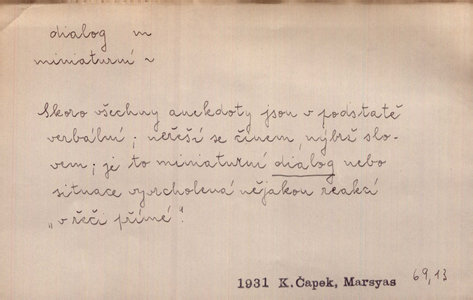 dialog m
miniaturní ~
Skoro všechny anekdoty jsou v podstatě
verbální; neřeší se činem, nýbrž slo-
vem; je to miniaturní dialog nebo
situace vyvrcholená nějakou reakcí
„v řeči přímé".
1931 K.Čapek, Marsyas 69,13